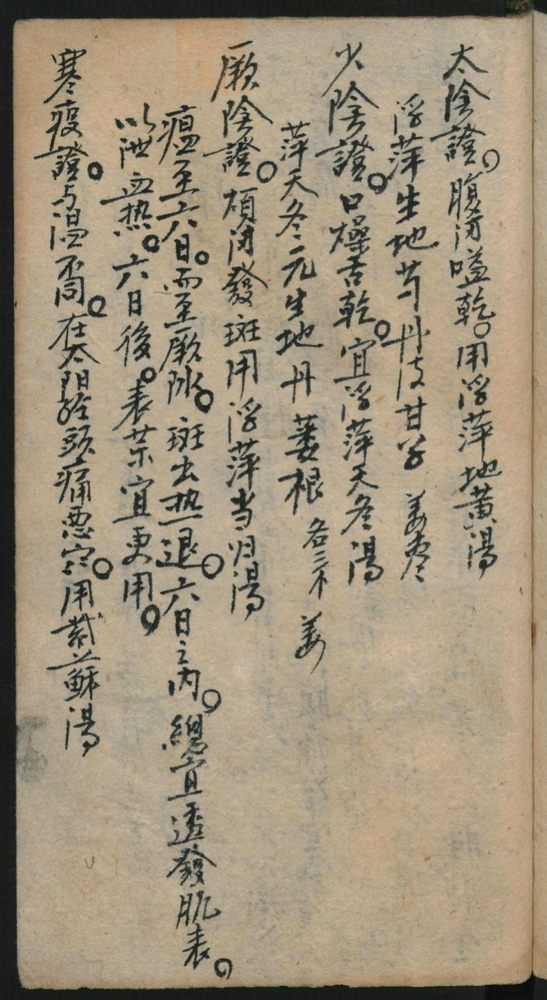 太陰證。腹滿嗌乾。用浮萍地黃湯
浮萍 生地 芍 丹皮 甘草 姜棗
少陰證。口燥舌乾。宜浮萍天冬湯
萍 天冬 元 生地 丹 蔞根 各三 姜
厥陰證。煩滿發斑用浮萍当归湯
瘟至六日。而至厥阴。斑出热退。六日之内。總宜透發肌表。
以泄血热。六日後。表药宜更用。
寒疫證与温不同。在太阳經头痛悪寒。用紫蘇湯